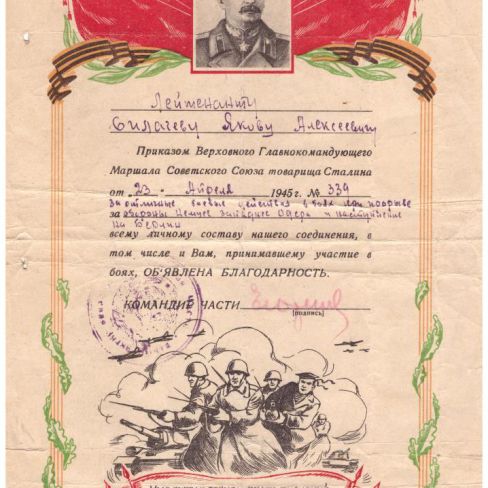 Лейтенанту
Силачеву Якову Алексеевичу
Приказом Верховного Главнокомандующего
Маршала Советского Союза товарища Сталина
от „23" Апреля 1945 г. № 339
за отличные боевые действия в боях при прорыве
за обороны немцев западнее Одера и наступление
на Берлин
всему личному составу нашего соединения, в
том числе и Вам, принимавшему участие в
боях, ОБ'ЯВЛЕНА БЛАГОДАРНОСТЬ.
КОМАНДИР ЧАСТИ
(подпись)